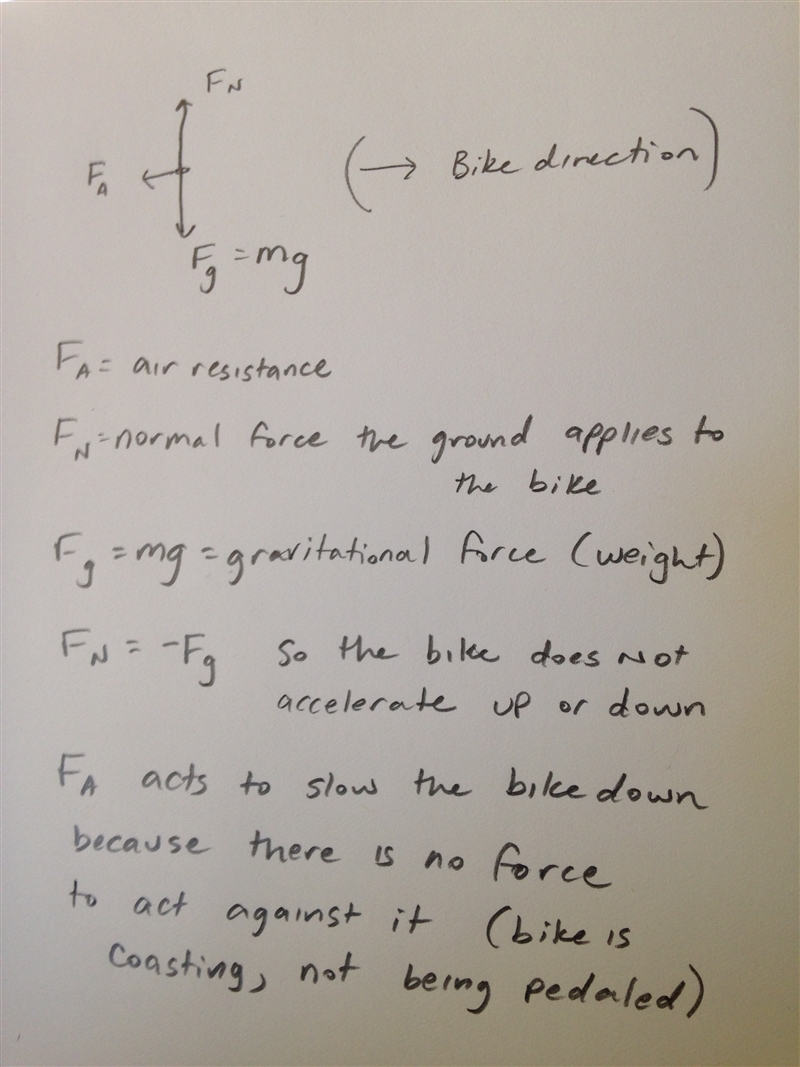 F_N
F_A
(→ Bike direction)
F_g = mg
F_A = air resistance
F_N = normal force the ground applies to
the bike
F_g = mg = gravitational force (weight)
F_N = -F_g so the bike does not
accelerate up or down
F_A acts to slow the bike down
because there is no force
to act against it (bike is
coasting, not being pedaled)